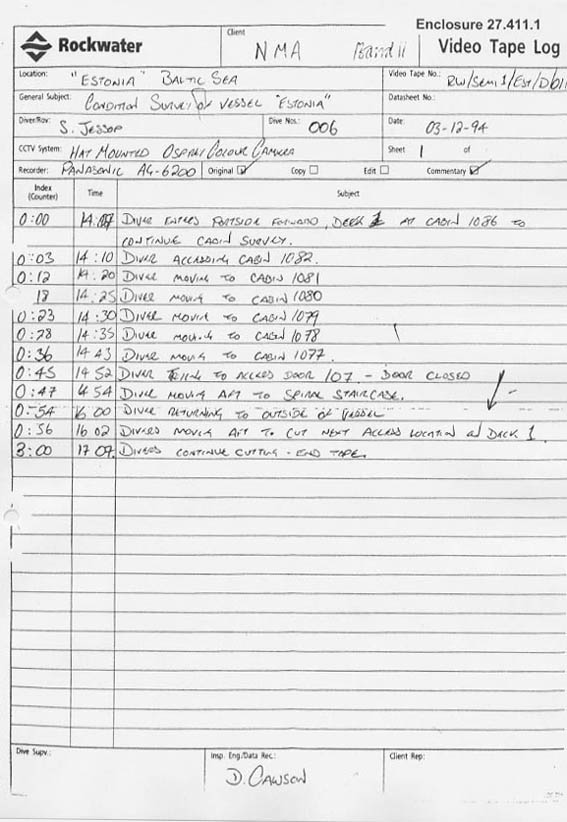 Enclosure 27.411.1
Rockwater
Client
NMA
Band II
Video Tape Log
Location: "ESTONIA" BALTIC SEA
Video Tape No.: RW/SEMI 1/EST/D/011
General Subject: CONDITION SURVEY OF VESSEL "ESTONIA"
Datasheet No.:
Diver/Rov: S. JESSOP
Dive Nos.: 006
Date: 03-12-94
CCTV System: HAT MOUNTED OSPREY COLOUR CAMERA
Sheet 1 of
Recorder: PANASONIC AG-6200
Original ☑ Copy ☐ Edit ☐ Commentary ☑
Index (Counter) Time Subject
0:00 14:07 DIVER ENTERS PORTSIDE FORWARD, DECK 1 AT CABIN 1086 TO
CONTINUE CABIN SURVEY.
0:03 14:10 DIVER ACCESSING CABIN 1082.
0:12 14:20 DIVER MOVING TO CABIN 1081
18 14:25 DIVER MOVING TO CABIN 1080
0:23 14:30 DIVER MOVING TO CABIN 1079
0:28 14:35 DIVER MOVING TO CABIN 1078
0:36 14 43 DIVER MOVING TO CABIN 1077.
0:45 14 52 DIVER TRYING TO ACCESS DOOR 107 - DOOR CLOSED
0:47 54 DIVER MOVING AFT TO SPIRAL STAIRCASE.
0:54 00 DIVER RETURNING TO OUTSIDE OF VESSEL
0:56 16 02 DIVERS MOVING AFT TO CUT NEXT ACCESS LOCATION ON DECK 1.
3:00 17 07. DIVERS CONTINUE CUTTING - END TAPE.
Dive Supv.:
Insp. Eng./Data Rec.:
Client Rep:
D. CAWSON